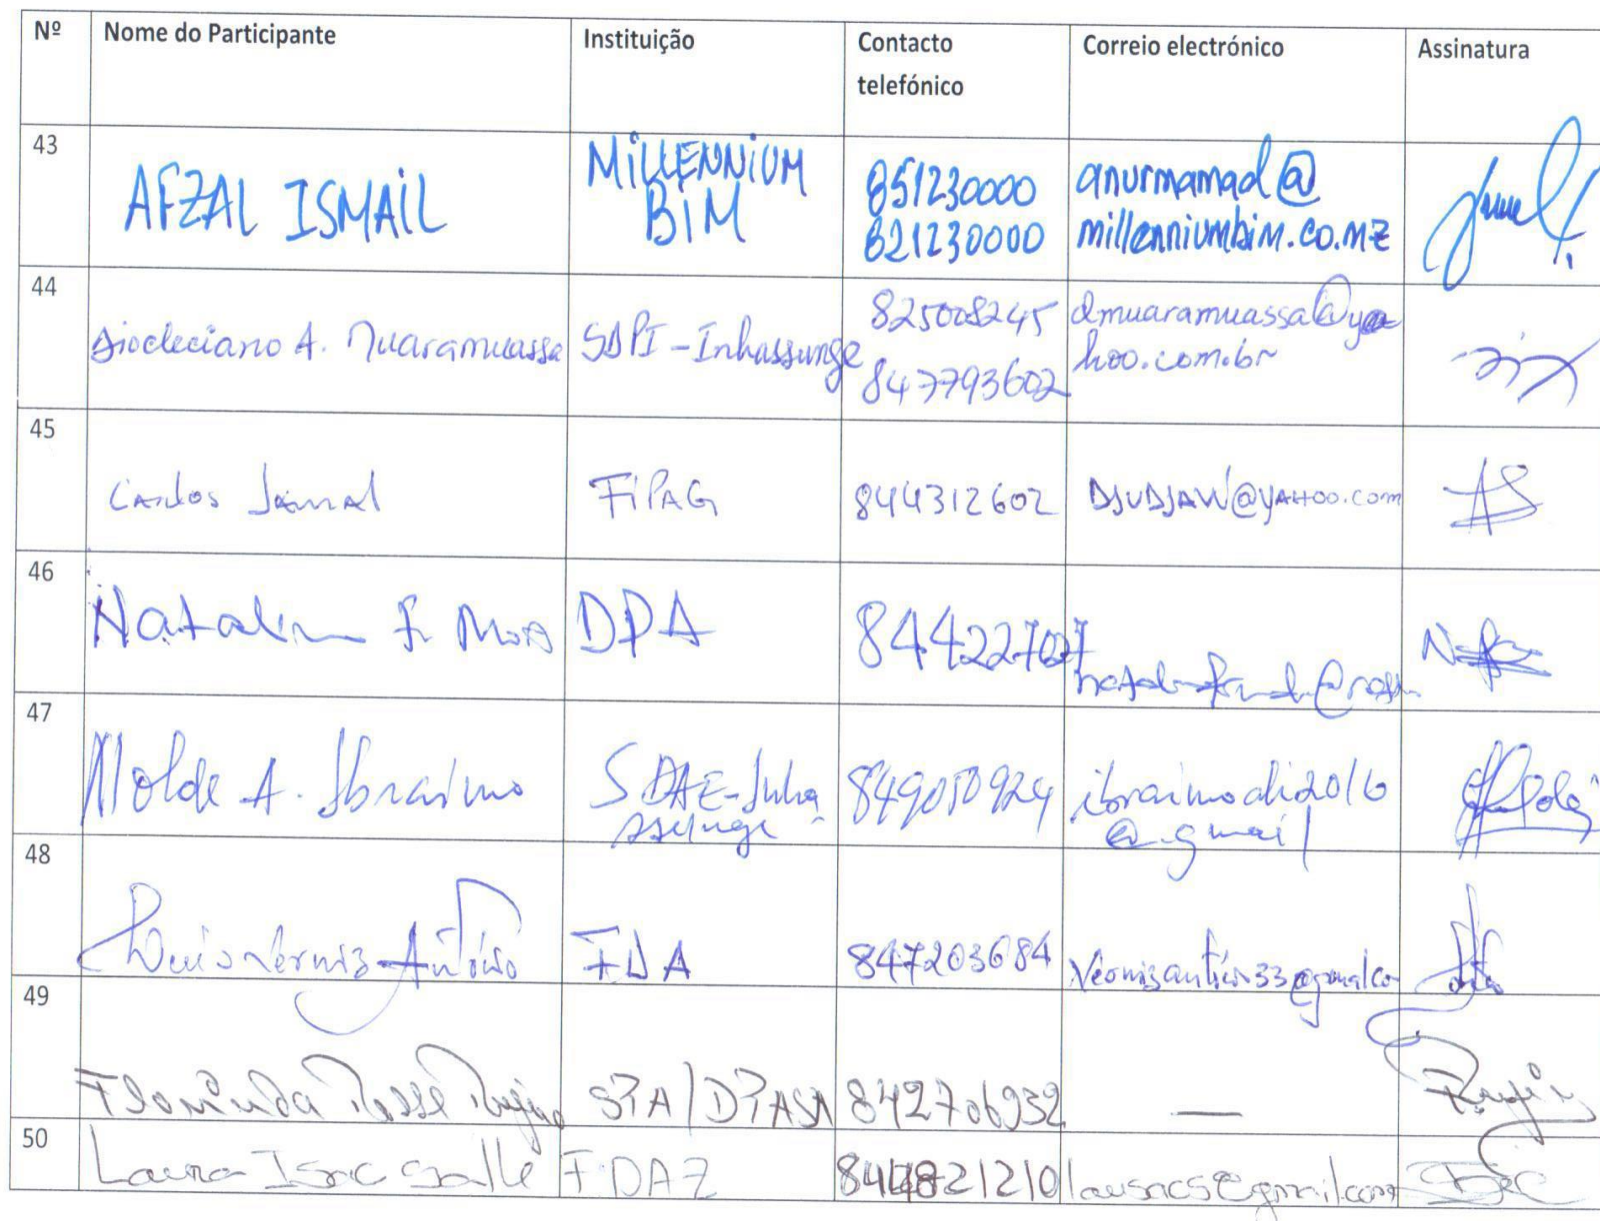 Nº Nome do Participante Instituição Contacto telefónico Correio electrónico Assinatura
43 AFZAL ISMAIL MILLENNIUM BIM 851230000 821230000 anurmamad@ millenniumbim.co.mz
44 Diocleciano A. Muaramuassa SDPI-Inhassunge 825008245 847793602 dmuaramuassa@ya hoo.com.br
45 Carlos Jamal FIPAG 844312602 DJUDJAW@YAHOO.COM
46 DPA 844227027
47 Molde A. Ibraimo SDAE-Inha ssunge 849050924 ibraimoali2016 @gmail
48 António FDA 847203684
49 Florinda SPA/DPASA 842706932 —
50 Laura Isac Salle FDAZ lausacs@gmail.com